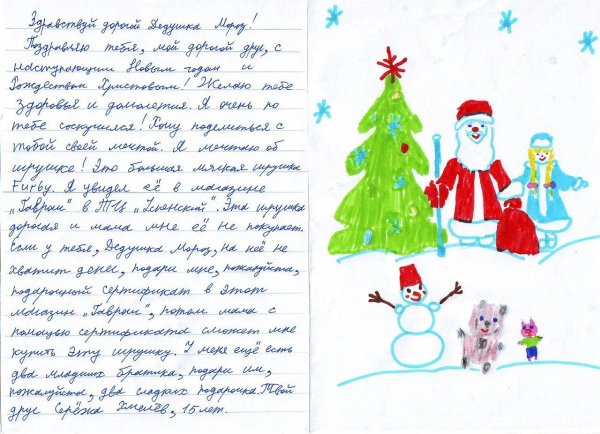 Здравствуй дорогой Дедушка Мороз!
Поздравляю тебя, мой дорогой друг, с
наступающим Новым годом и
Рождеством Христовым! Желаю тебе
здоровья и долголетия. Я очень по
тебе соскучился! Хочу поделиться с
тобой своей мечтой. Я мечтаю об
игрушке! Это большая мягкая игрушка
Furby. Я увидел её в магазине
„Гаврош" в ТЦ „Успенский". Эта игрушка
дорогая и мама мне её не покупает.
Если у тебя, Дедушка Мороз, на неё не
хватит денег, подари мне, пожалуйста,
подарочный сертификат в этот
магазин „Гаврош", потом мама с
помощью сертификата сможет мне
купить эту игрушку. У меня ещё есть
два младших братика, подари им,
пожалуйста, два сладких подарочка. Твой
друг Серёжа Хмелёв, 15 лет.